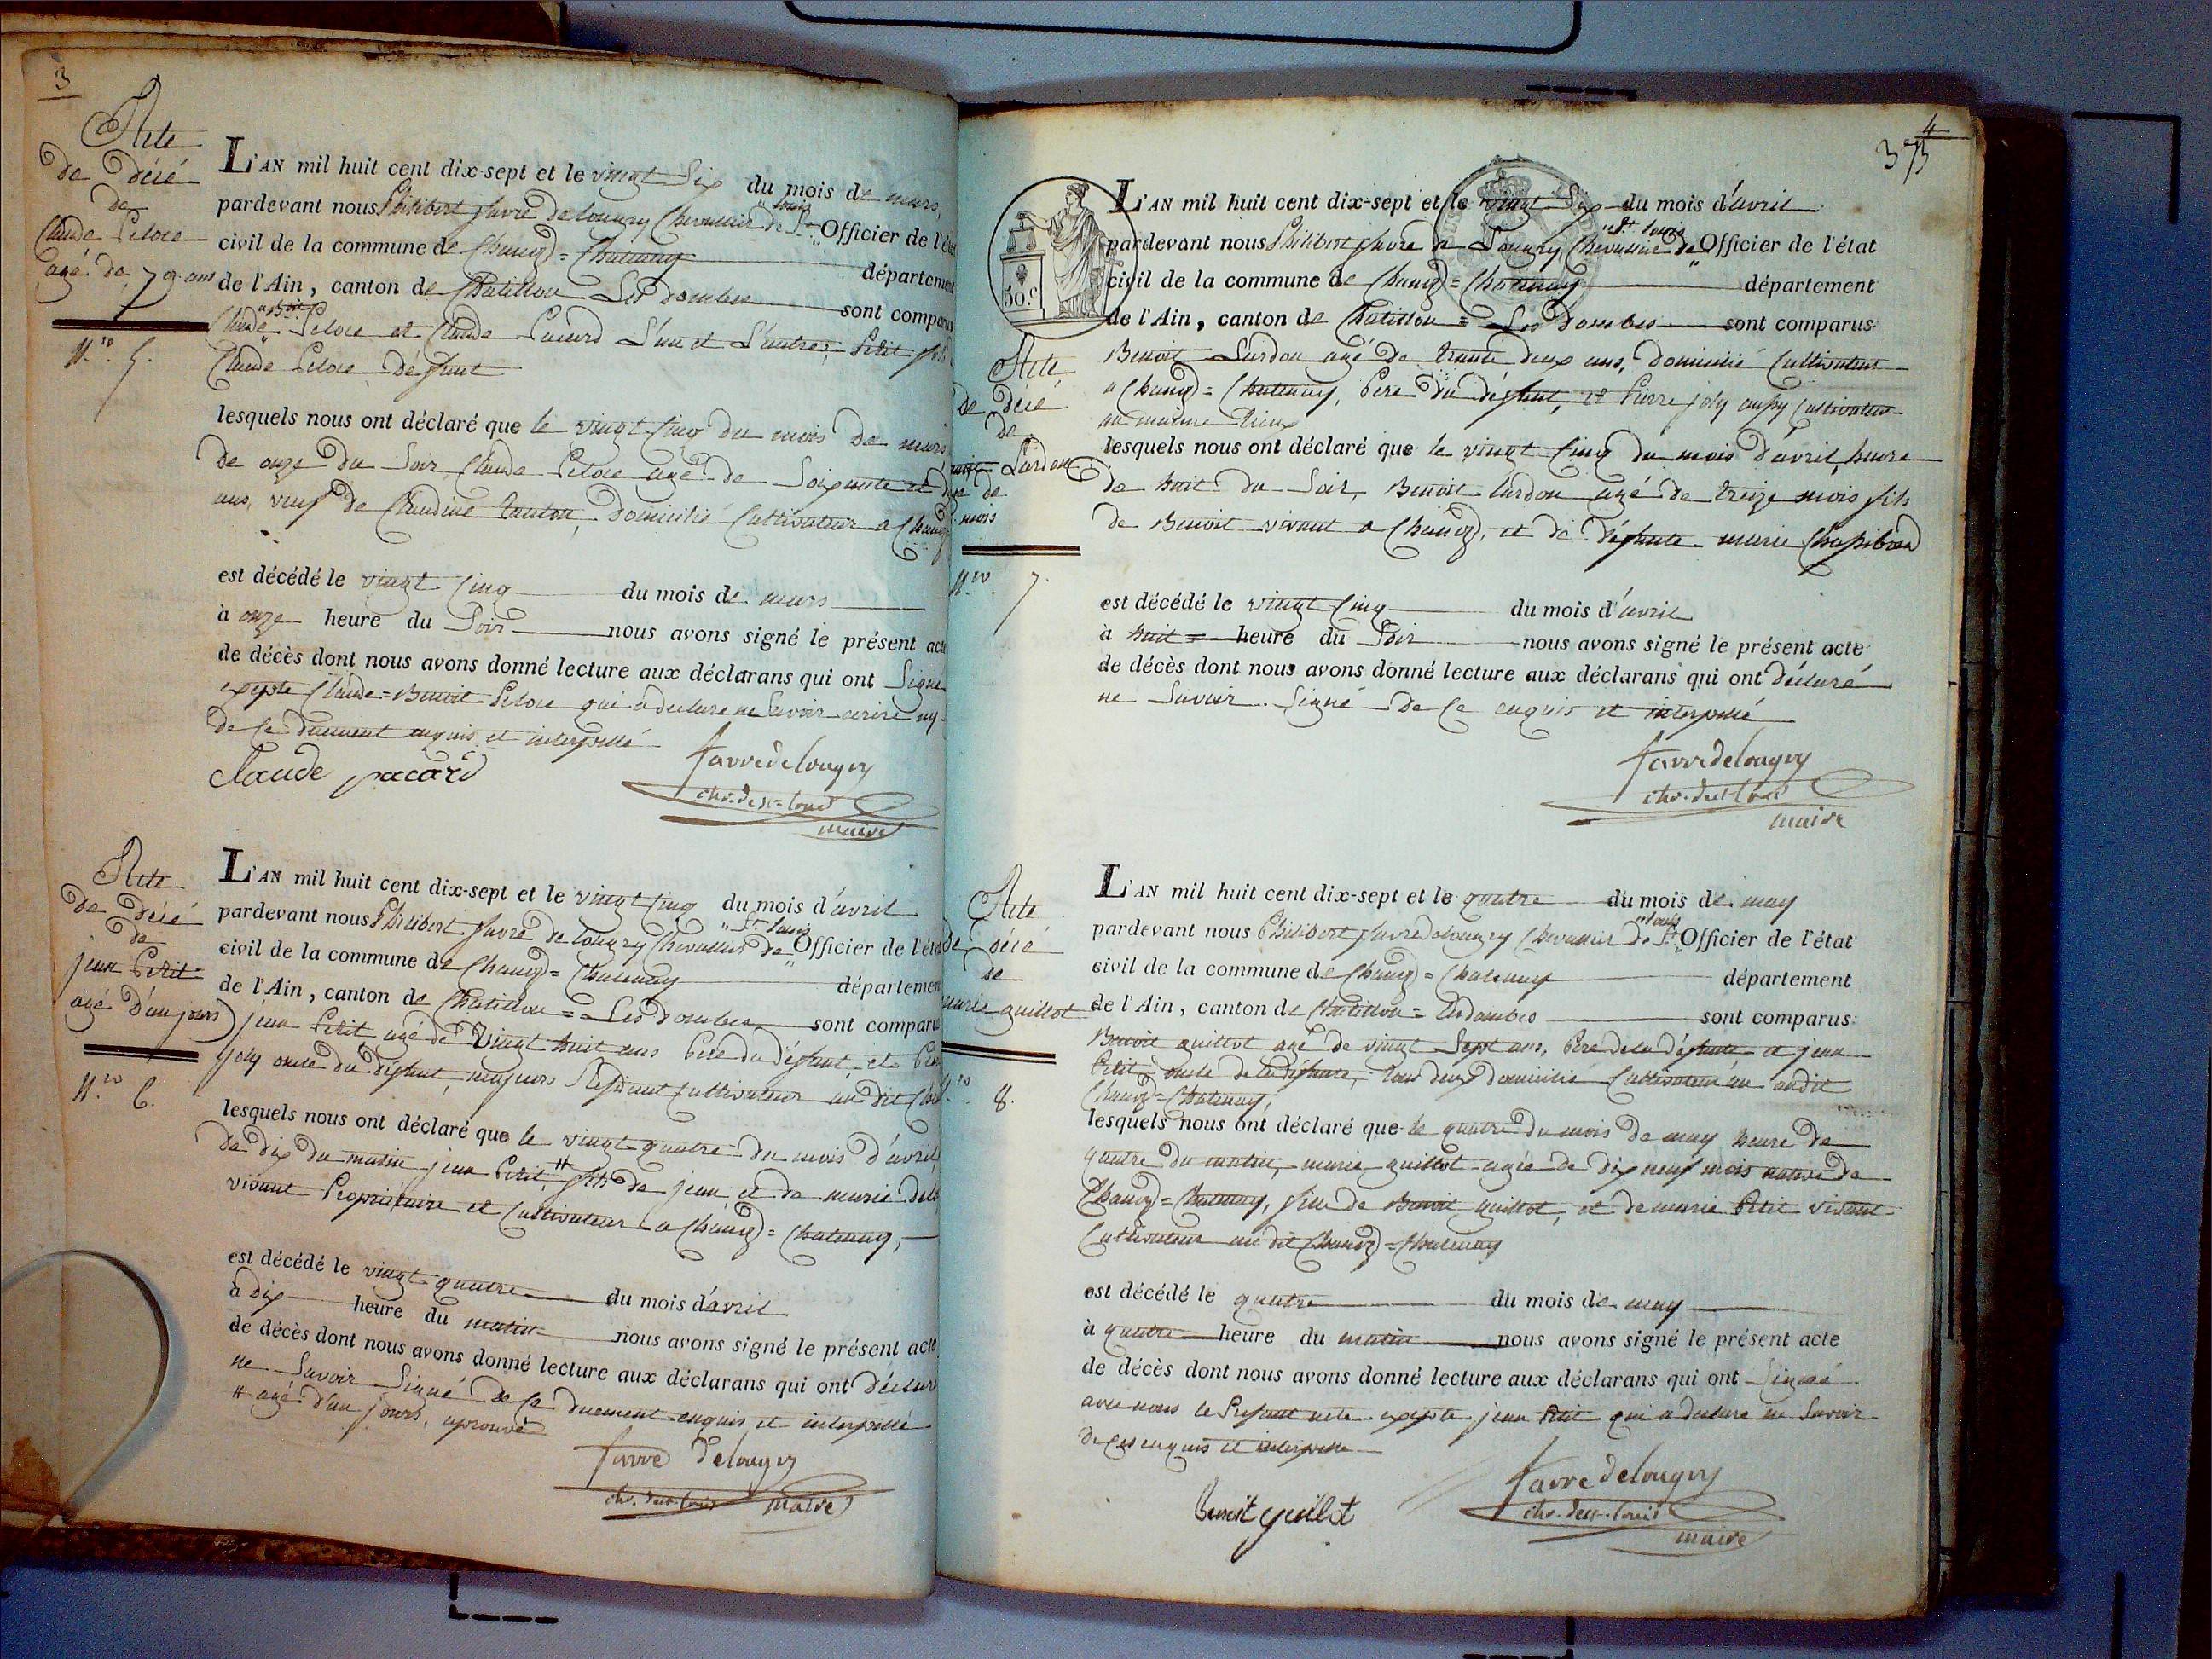 3
Acte
de décé
de
Claude Peloce
agé de 79 ans
N.ro 5.
L'AN mil huit cent dix-sept et le vingt Six du mois de mars,
pardevant nous Philibert favre delougry Chevallier de St. Louis Officier de l'état
civil de la commune de Chaney)=Chatenay département
de l'Ain, canton de Chatillon Les dombes sont comparus
Claude Boit Peloce et Claude Pacard L'un et L'autre, Petit fils
Claude Peloce défunt
lesquels nous ont déclaré que le vingt Cinq du mois de mars
de onze du Soir Claude Peloce agé de Soixante et dix
ans, veuf de Claudine domicilié Cultivateur a
est décédé le vingt Cinq du mois de mars
à onze heure du Soir nous avons signé le présent acte
de décès dont nous avons donné lecture aux déclarans qui ont Signé
exepte Claude=Benoit Peloce qui a declare ne Savoir ecrire ny
de Ce duement enquis et interpellé
Claude pacard
favre delougry
chr. de st=louis
maire
Acte
de décé
de
jean Petit
agé d'un jours
N.ro 6.
L'AN mil huit cent dix-sept et le vingt Cinq du mois d'avril
pardevant nous Philibert favre de lougry Chevallier de St. Louis Officier de l'état
civil de la commune de =Chatenay département
de l'Ain, canton de Chatillon = Les dombes sont comparus
jean Petit agé de vingt huit ans Pere du défunt et
joly oncle du défunt, majeurs Cultivateur au dit
lesquels nous ont déclaré que le vingt quatre du mois d'avril
de dix du matin jean Petit, # fils de jean et de marie
vivant Propriétaire et Cultivateur a =Chatenay,
est décédé le vingt quatre du mois d'avril
à dix heure du matin nous avons signé le présent acte
de décès dont nous avons donné lecture aux déclarans qui ont déclaré
ne Savoir Signé de Ce duement enquis et interpellé
# agé d'un jours, aprouvé
favre delougry
chr. de st=louis maire
4
373
50.c
Acte
de décé
de
Lardon
de
mois
N.ro 7.
L'AN mil huit cent dix-sept et le vingt Six du mois d'avril
pardevant nous Philibert favre de Lougry Chevallier de St. Louis Officier de l'état
civil de la commune de =Chatenay département
de l'Ain, canton de Chatillon = Les dombes sont comparus
Benoit Lardon agé de trante deux ans, domicilié Cultivateur
a =Chatenay, Pere du défunt, et Pierre joly aussy Cultivateur
au meme Lieux
lesquels nous ont déclaré que le vingt Cinq du mois d'avril, heure
de huit du Soir, Benoit lardon agé de treize mois fils
de Benoit vivant a et de défunte marie
est décédé le vingt Cinq du mois d'avril
à huit = heure du Soir nous avons signé le présent acte
de décès dont nous avons donné lecture aux déclarans qui ont déclaré
ne Savoir Signé de Ce enquis et interpellé
favre delougry
chr. de st=louis
maire
Acte
de décé
de
marie guillot
N.ro 8.
L'AN mil huit cent dix-sept et le quatre du mois de may
pardevant nous Philibert favre delougry Chevallier de St. Louis Officier de l'état
civil de la commune de =Chatenay département
de l'Ain, canton de Chatillon = Les dombes sont comparus
Benoit guillot agé de vingt Sept ans, Pere de la défunte et jean
Petit oncle de la défunte, tous deux domicilié Cultivateur audit
=Chatenay,
lesquels nous ont déclaré que le quatre du mois de may heure de
quatre du matin, marie guillot agée de dix neuf mois native de
=Chatenay, fille de Benoit guillot, et de marie Petit vivant
Cultivateur au dit =Chatenay
est décédé le quatre du mois de may
à quatre heure du matin nous avons signé le présent acte
de décès dont nous avons donné lecture aux déclarans qui ont Signé
avec nous le Présent acte exepte jean Petit qui a declare ne Savoir
de Ces enquis et interpelle
Benoit guillot
favre delougry
chr. de st=louis
maire